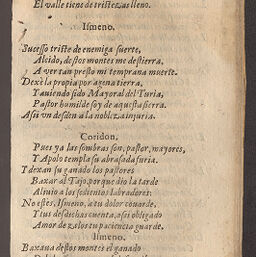 El valle tiene de tristezas lleno.
Ismeno.
Sucesso triste de enemiga suerte,
Alcido, destos montes me destierra,
A ver tan presto mi temprana muerte.
Dexè la propia por agena tierra,
Y auiendo sido Mayoral del Turia,
Pastor humilde soy de aquesta sierra.
Assi vn desden a la nobleza injuria.
Coridon.
Pues ya las sombras son, pastor, mayores,
Y Apolo templa su abrasada furia.
Y dexan su ganado los pastores
Baxar al Tajo, porque dio la tarde
Aliuio a los sedientos labradores:
No estes, Ismeno, a tu dolor couarde,
Y tus desdichas cuenta, assi obligado
Amor de zelos tu paciencia guarde.
Ismeno.
Baxaua destos montes el ganado